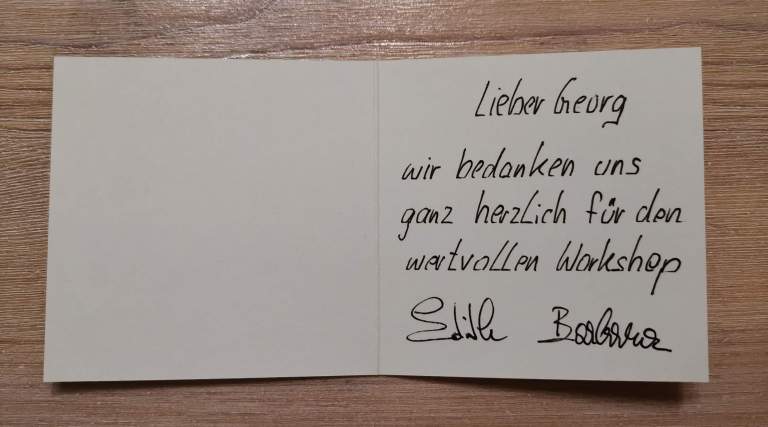 Lieber Georg
wir bedanken uns
ganz herzlich für den
wertvollen Workshop
Edith Barbara